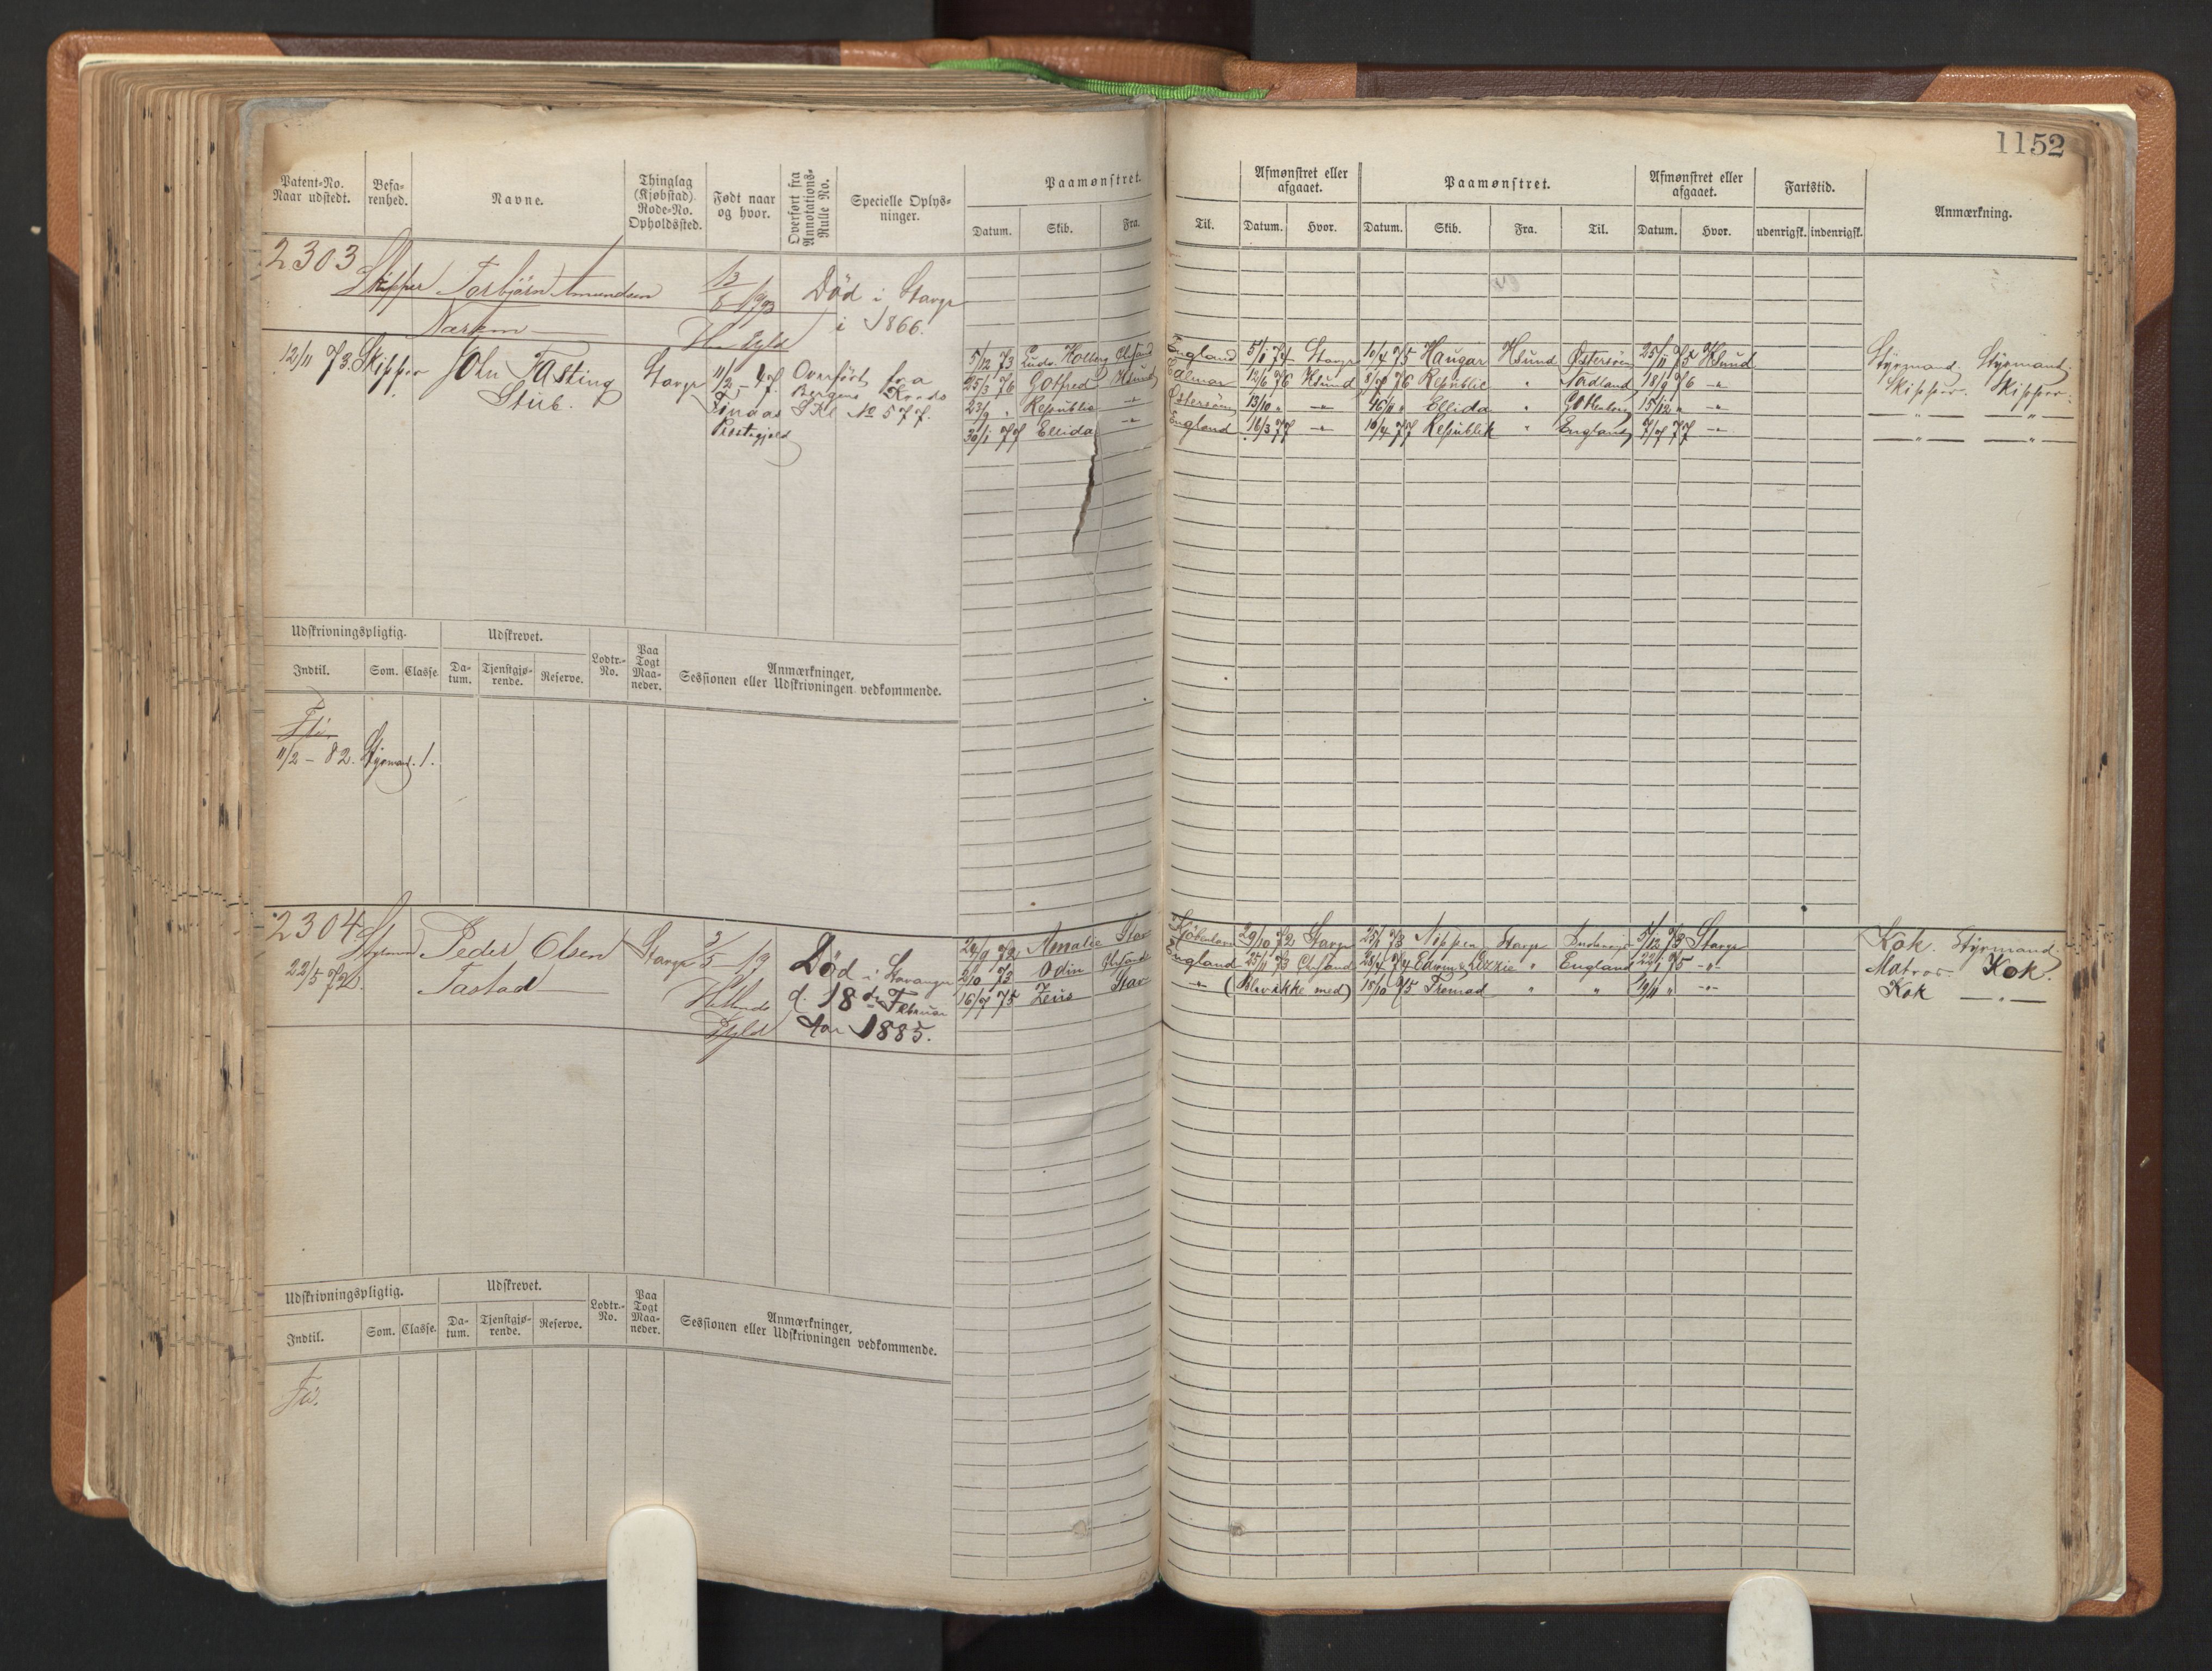 1152
Patent-No. Naar udstedt. Befarenhed. Navne. Thinglag (Kjøbstad). Rode-No. Opholdssted. Født naar og hvor. Overført fra Annotations-Rulle No. Specielle Oplysninger. Paamønstret. Afmønstret eller afgaaet. Paamønstret. Afmønstret eller afgaaet. Fartstid. Anmærkning.
Datum. Skib. Fra. Til. Datum. Hvor. Datum. Skib. Fra. Til. Datum. Hvor. udenrigsk. indenrigsk.
2303
Skipper Torbjörn Amundsen Død i Stavgr
i 1866.
12/11 73. Skipper John Fasting Stavgr 11/2 - 47. Overført fra 5/12 73 Ludv. Holberg England 5/1 74 Stavgr 10/4 75 Haugar Hsund Østersøen 25/11 75 Hsund Styrmand. Styrmand.
Stub. Finaas Bergens Kreds 25/3 76 Gotfred Hsund 12/6 76 Hsund 8/7 76 Republic " Nordland 18/9 76 -"- Skipper. Skipper.
Prestegjeld SRl No 577. 23/9 " Republic -"- Østersøen 13/10 " -"- Ellida " 15/12 " -"- -"- -"-
30/1 77 Ellida -"- England 16/3 77 -"- 10/4 77 Republik " England 7/7 77 -"- -"- -"-
Udskrivningspligtig. Udskrevet. Lodtr.-No. Paa Togt Maaneder. Anmærkninger, Sessionen eller Udskrivningen vedkommende.
Indtil. Som. Classe. Datum. Tjenstgjørende. Reserve.
11/2 - 82. Styrmand. 1.
2304
Peder Olsen Stavgr 3/5 - 19 Død i Stavanger Amalie Stav 29/10 72 Stavgr 25/1 73 Stavgr 5/12 73 Stavgr Kok. Styrmand.
22/5 72 Tastad d. 18de Februar 2/10 73 Odin England 25/11 73 Edwin & Lizzie " England 22/1 75 -"- Matros. Kok.
Aar 1885. 16/7 75 Zeus Stav -"- 18/10 75 Fremad " " -"- Kok -"-
Udskrivningspligtig. Udskrevet. Lodtr.-No. Paa Togt Maaneder. Anmærkninger, Sessionen eller Udskrivningen vedkommende.
Indtil. Som. Classe. Datum. Tjenstgjørende. Reserve.
Fri.